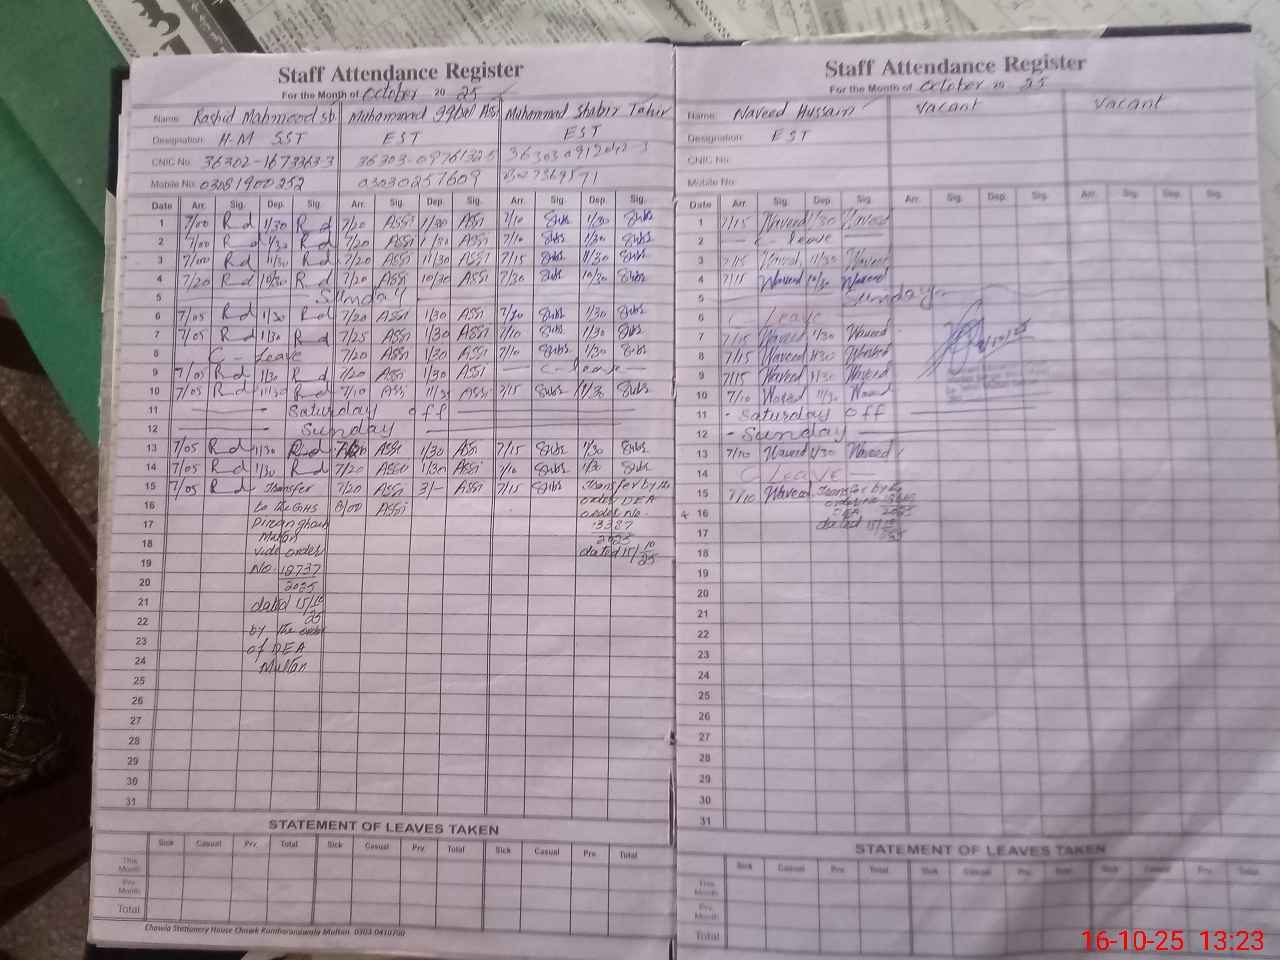 Staff Attendance Register
For the Month of October 20 25
Name: Rashid Mahmood sb Muhammad Iqbal Assi Muhammad Shabir Tahir
Designation: H-M SST EST EST
CNIC No: 36302-1673363-3
Mobile No: 03081900252 03030257609
Date Arr. Sig. Dep. Sig. Arr. Sig. Dep. Sig. Arr. Sig. Dep. Sig.
1 7/00 Rd 1/30 Rd 7/20 Assi 1/30 Assi 7/10 Subs 1/30 Subs
2 7/00 Rd 1/30 Rd 7/20 Assi 1/30 Assi 7/10 Subs 1/30 Subs
3 7/00 Rd 11/30 Rd 7/20 Assi 11/30 Assi 7/15 Subs 11/30 Subs
4 7/20 Rd 10/30 Rd 7/20 Assi 10/30 Assi 7/30 Subs 10/30 Subs
5 Sunday
6 7/05 Rd 1/30 Rd 7/20 Assi 1/30 Assi Subs 1/30 Subs
7 7/05 Rd 1/30 Rd 7/25 Assi 1/30 Assi 7/10 Subs 1/30 Subs
8 C - Leave 7/20 Assi 1/30 Assi 7/10 Subs 1/30 Subs
9 7/05 Rd 1/30 Rd 7/20 Assi 1/30 Assi - C - leave -
10 7/05 Rd 11/30 Rd 7/10 Assi 11/30 Assi 7/15 Subs 11/30 Subs
11 - Saturday off
12 - Sunday
13 7/05 Rd 1/30 Rd 7/20 Assi 1/30 Assi 7/15 Subs 1/30 Subs
14 7/05 Rd 1/30 Rd 7/20 Assi 1/30 Assi 7/10 Subs 1/30 Subs
15 7/05 Rd Transfer 7/20 Assi 3/- Assi 7/15 Subs Transfer by the
16 to the GHS 8/00 Assi order DEA
17 Piranghaib order No.
Multan 3387
18 vide order 2025
19 No. 18737 dated 15/10/25
20 2025
21 dated 15/10
22 25
by the order
23 of DEA
24 Multan
25
26
27
28
29
30
31
STATEMENT OF LEAVES TAKEN
Sick Casual Prv. Total Sick Casual Prv. Total Sick Casual Prv. Total
This Month
Prv. Month
Total
Chawla Stationery House Chowk Kumharanwala Multan. 0303-0410700
Staff Attendance Register
For the Month of October 20 25
Name: Naveed Hussain Vacant Vacant
Designation: EST
CNIC No:
Mobile No:
Date Arr. Sig. Dep. Sig. Arr. Sig. Dep. Sig. Arr. Sig. Dep. Sig.
1 7/15 Naveed 1/30 Naveed
2 - C - leave -
3 7/15 Naveed 11/30 Naveed
4 7/15 Naveed 10/30 Naveed
5 Sunday
6 C - Leave
7 7/15 Naveed 1/30 Naveed
8 7/15 Naveed 1/30 Naveed
9 7/15 Naveed 1/30 Naveed
10 7/10 Naveed 11/30 Naveed
11 - Saturday off
12 - Sunday
13 7/10 Naveed 1/30 Naveed
14 C Leave -
15 7/10 Naveed Transfer by the
16 order no.
DEA 2025
17 dated 15/10
18
19
20
21
22
23
24
25
26
27
28
29
30
31
STATEMENT OF LEAVES TAKEN
Sick Casual Prv. Total Sick Casual Prv. Total Sick Casual Prv. Total
This Month
Prv. Month
Total
16-10-25 13:23